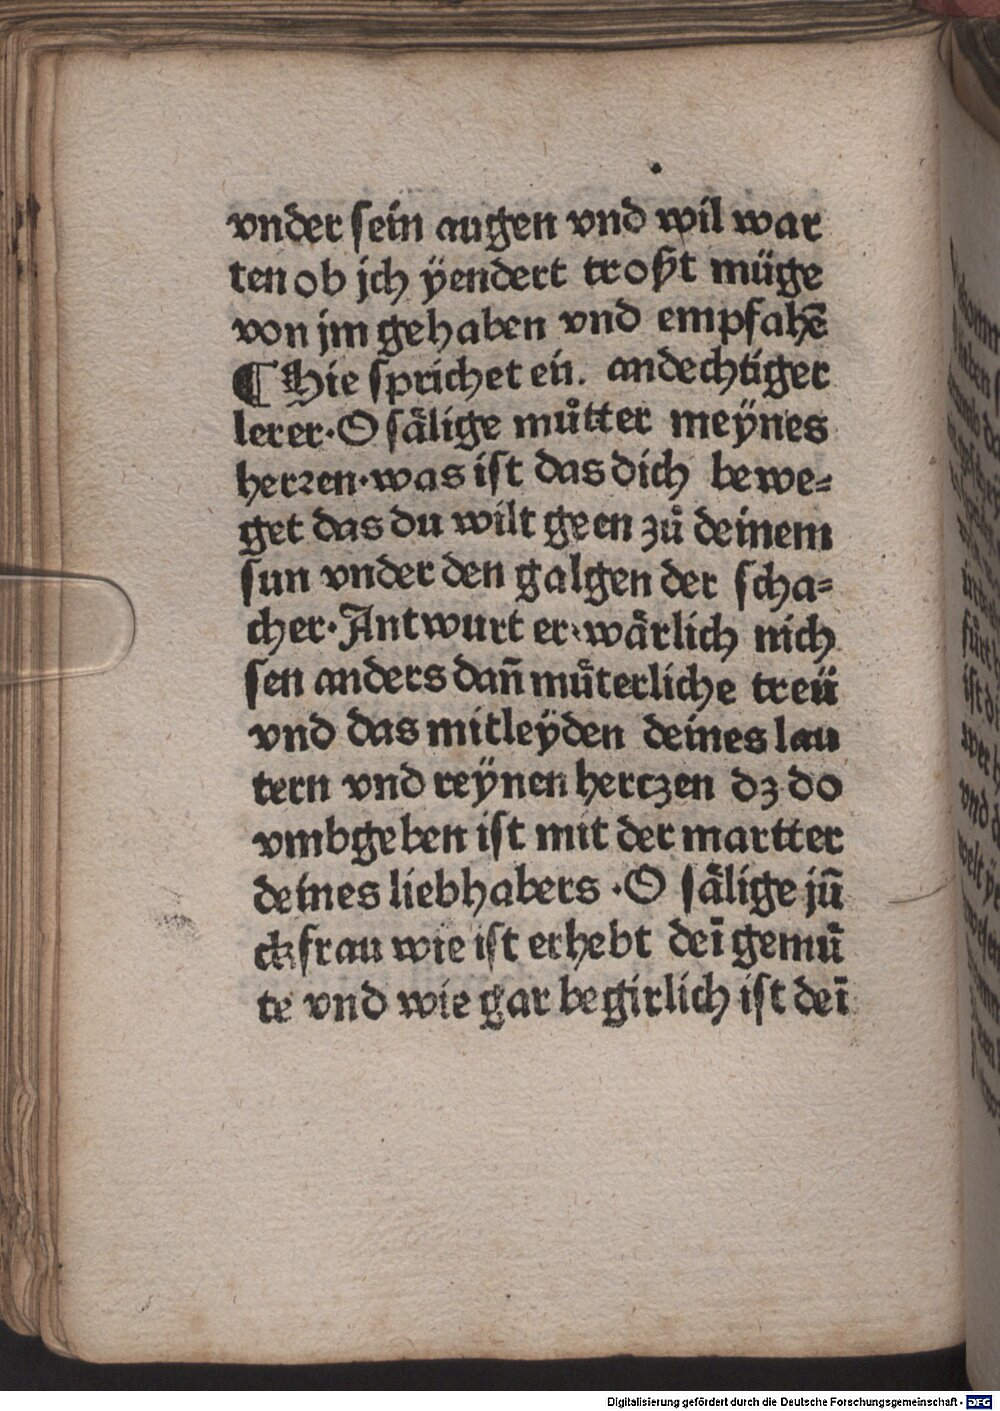 vnder sein augen vnd wil war
ten ob jch ÿendert trost müge
von jm gehaben vnd empfahē
¶ Hie sprichet ein. andechtiger
lerer·O sålige můtter meÿnes
herren·was ist das dich bewe⸗
get das du wilt geen zů deinem
sun vnder den galgen der scha⸗
cher·Antwurt er·wårlich nich
sen anders dañ můterliche treü
vnd das mitleÿden deines lau
tern vnd reÿnen hertzen dz do
vmbgeben ist mit der martter
deines liebhabers ·O sålige jū
ckfrau wie ist erhebt deī gemů
te vnd wie gar begirlich ist deī
Digitalisierung gefördert durch die Deutsche Forschungsgemeinschaft - DFG